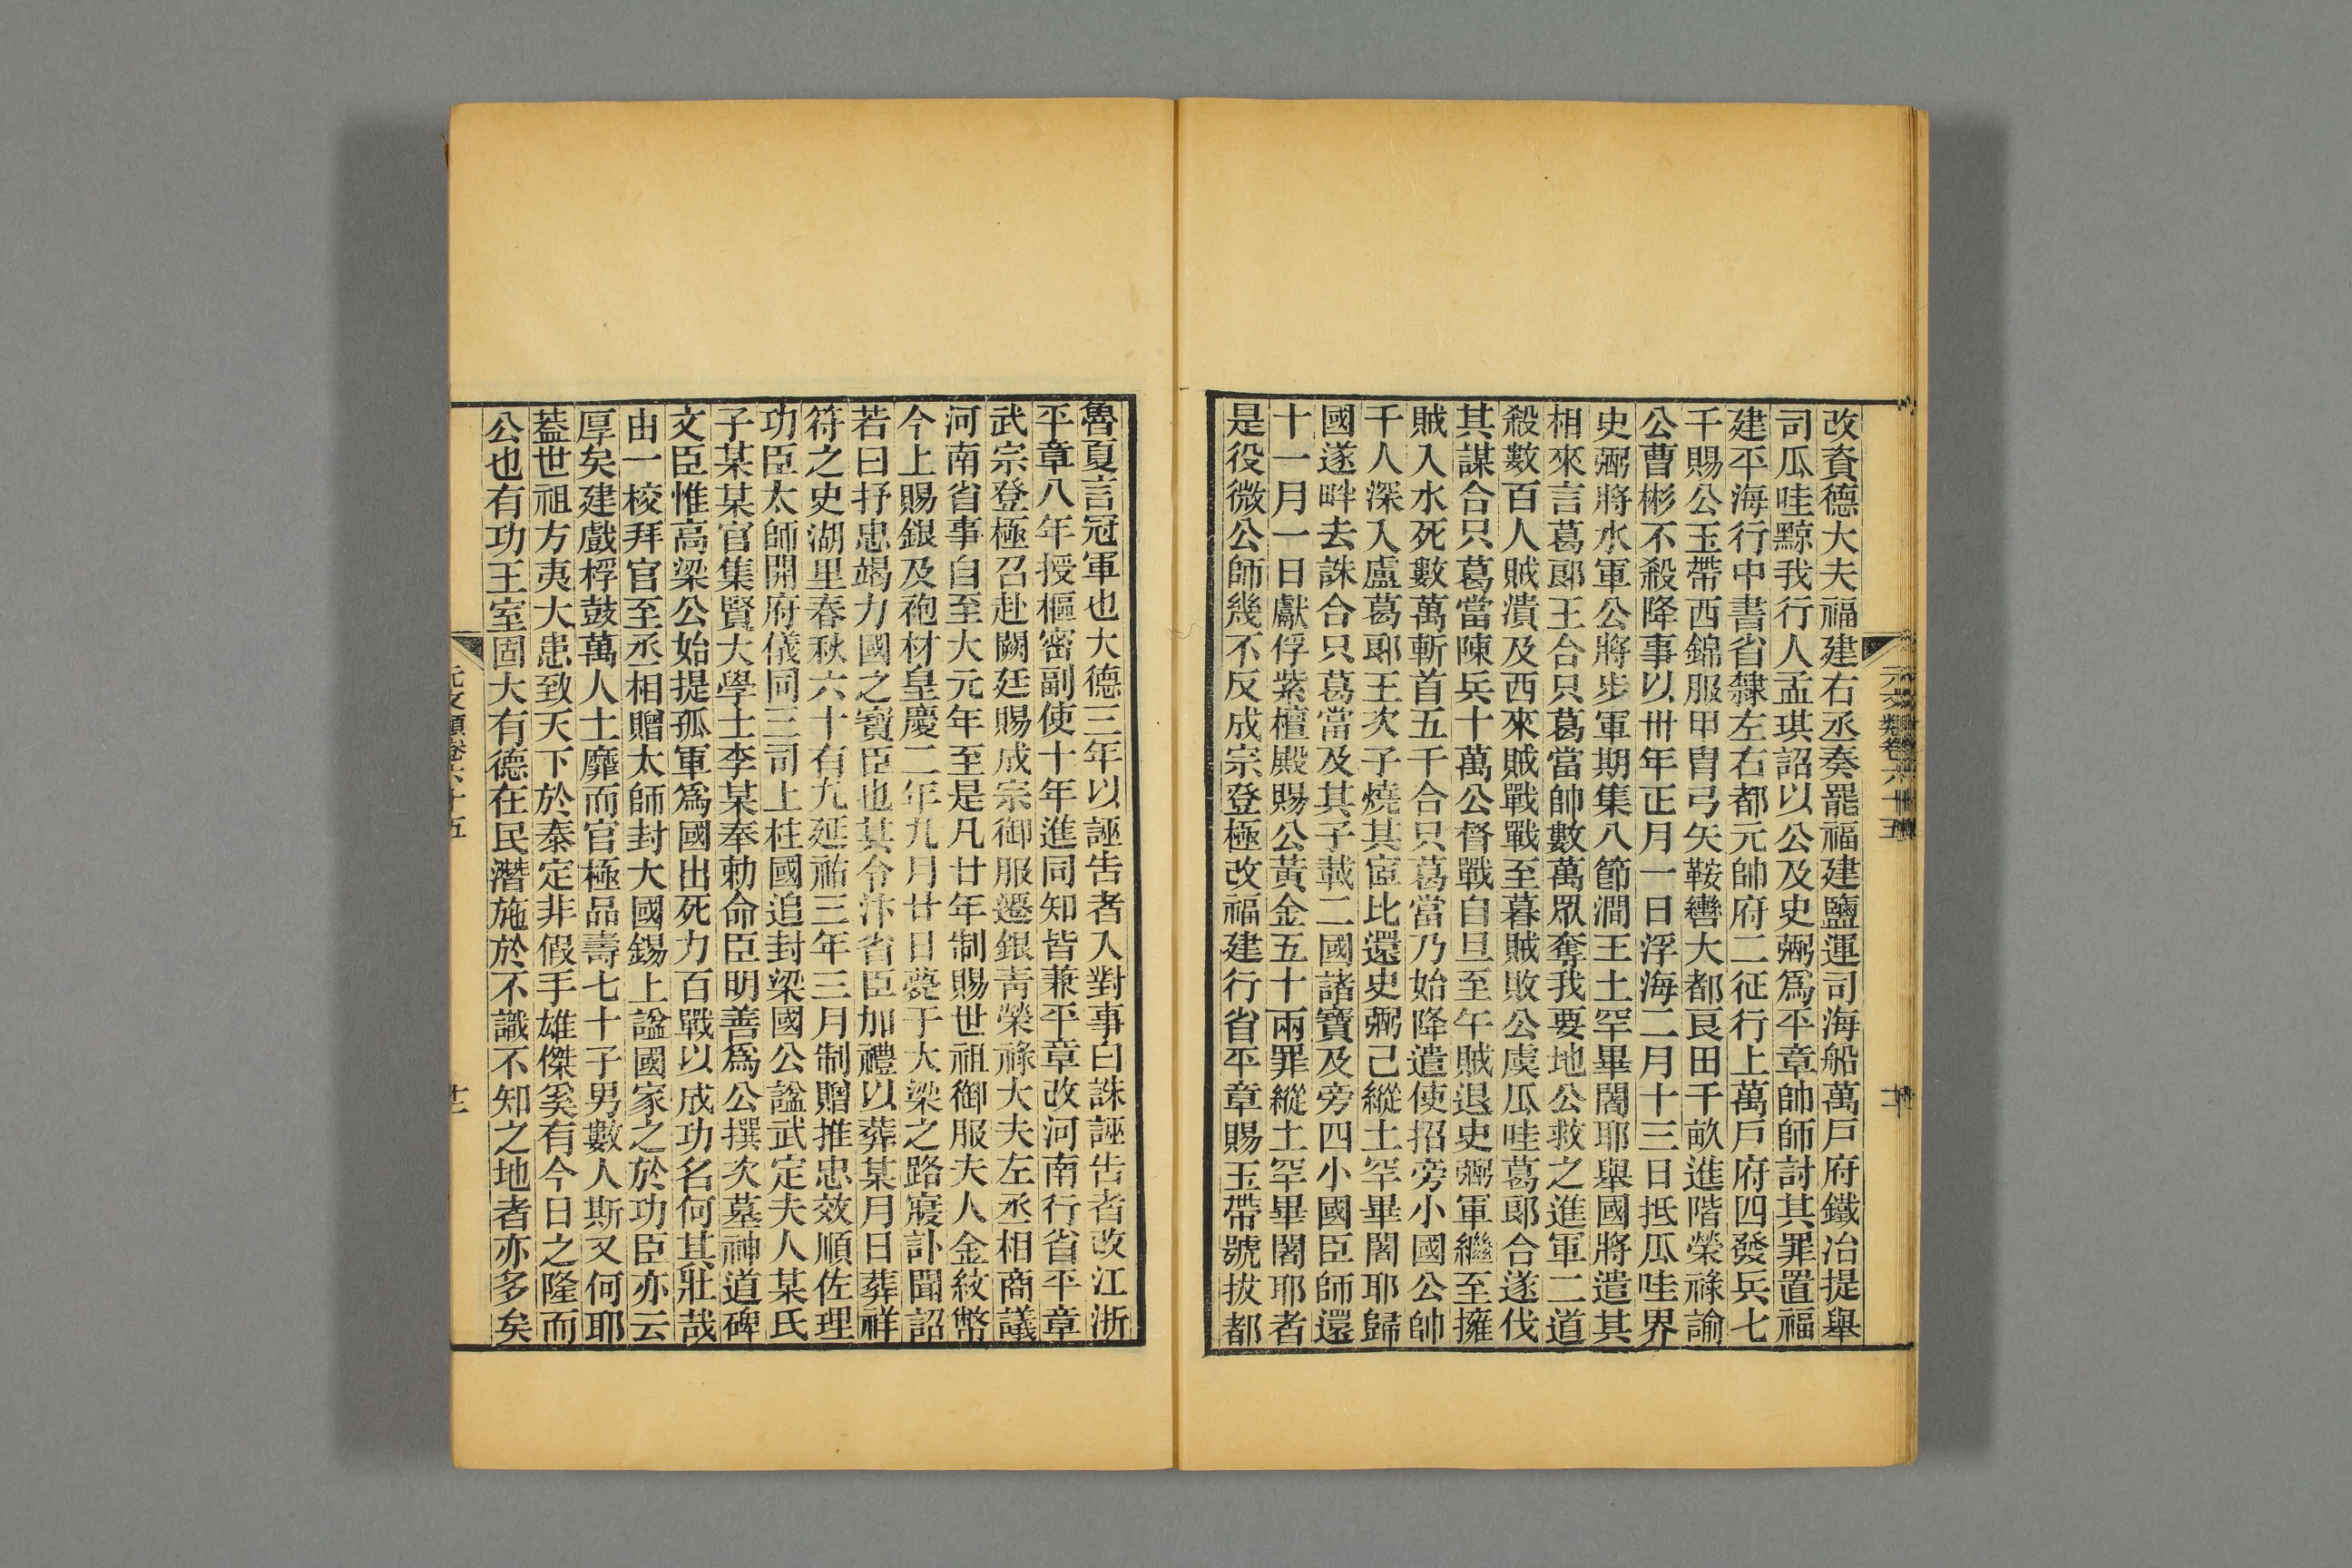 改資德大夫福建右丞奏罷福建鹽運司海船萬戸府鐵冶提舉
司瓜哇黥我行人孟琪詔以公及史弼爲平章帥師討其罪置福
建平海行中書省隸左右都元帥府二征行上萬戸府四發兵七
千賜公玉帶西錦服甲胄弓矢鞍轡大都良田千畝進階榮祿諭
公曹彬不殺降事以卅年正月一日浮海二月十三日抵瓜哇界
史弼將水軍公將步軍期集八節澗王土罕畢闍耶舉國將遣其
相來言葛郎王合只葛當帥數萬眾奪我要地公救之進軍二道
殺數百人賊潰及西來賊戰戰至暮賊敗公虞瓜哇葛郎合遂伐
其謀合只葛當陳兵十萬公督戰自旦至午賊退史弼軍繼至擁
賊入水死數萬斬首五千合只葛當乃始降遣使招旁小國公帥
千人深入盧葛郎王次子燒其宮比還史弼已縱土罕畢闍耶歸
國遂畔去誅合只葛當及其子載二國諸寶及旁四小國臣師還
十一月一日獻俘紫檀殿賜公黃金五十兩罪縱土罕畢闍耶者
是役微公師幾不反成宗登極改福建行省平章賜玉帶號拔都
元文類卷六十五
魯夏言冠軍也大德三年以誣告者入對事白誅誣告者改江浙
平章八年授樞密副使十年進同知皆兼平章改河南行省平章
武宗登極召赴闕廷賜成宗御服遷銀青榮祿大夫左丞相商議
河南省事自至大元年至是凡廿年制賜世祖御服夫人金紋幣
今上賜銀及袍材皇慶二年九月廿日薨于大梁之路寢訃聞詔
若曰抒忠竭力國之寶臣也其令汴省臣加禮以葬某月日葬祥
符之史湖里春秋六十有九延祐三年三月制贈推忠效順佐理
功臣太師開府儀同三司上柱國追封梁國公諡武定夫人某氏
子某某官集賢大學士李某奉勅命臣明善爲公撰次墓神道碑
文臣惟高梁公始提孤軍爲國出死力百戰以成功名何其壯哉
由一校拜官至丞相贈太師封大國錫上諡國家之於功臣亦云
厚矣建戲桴鼓萬人士靡而官極品壽七十子男數人斯又何耶
蓋世祖方夷大患致天下於泰定非假手雄傑奚有今日之隆而
公也有功王室固大有德在民潛施於不識不知之地者亦多矣
元文類卷六十五